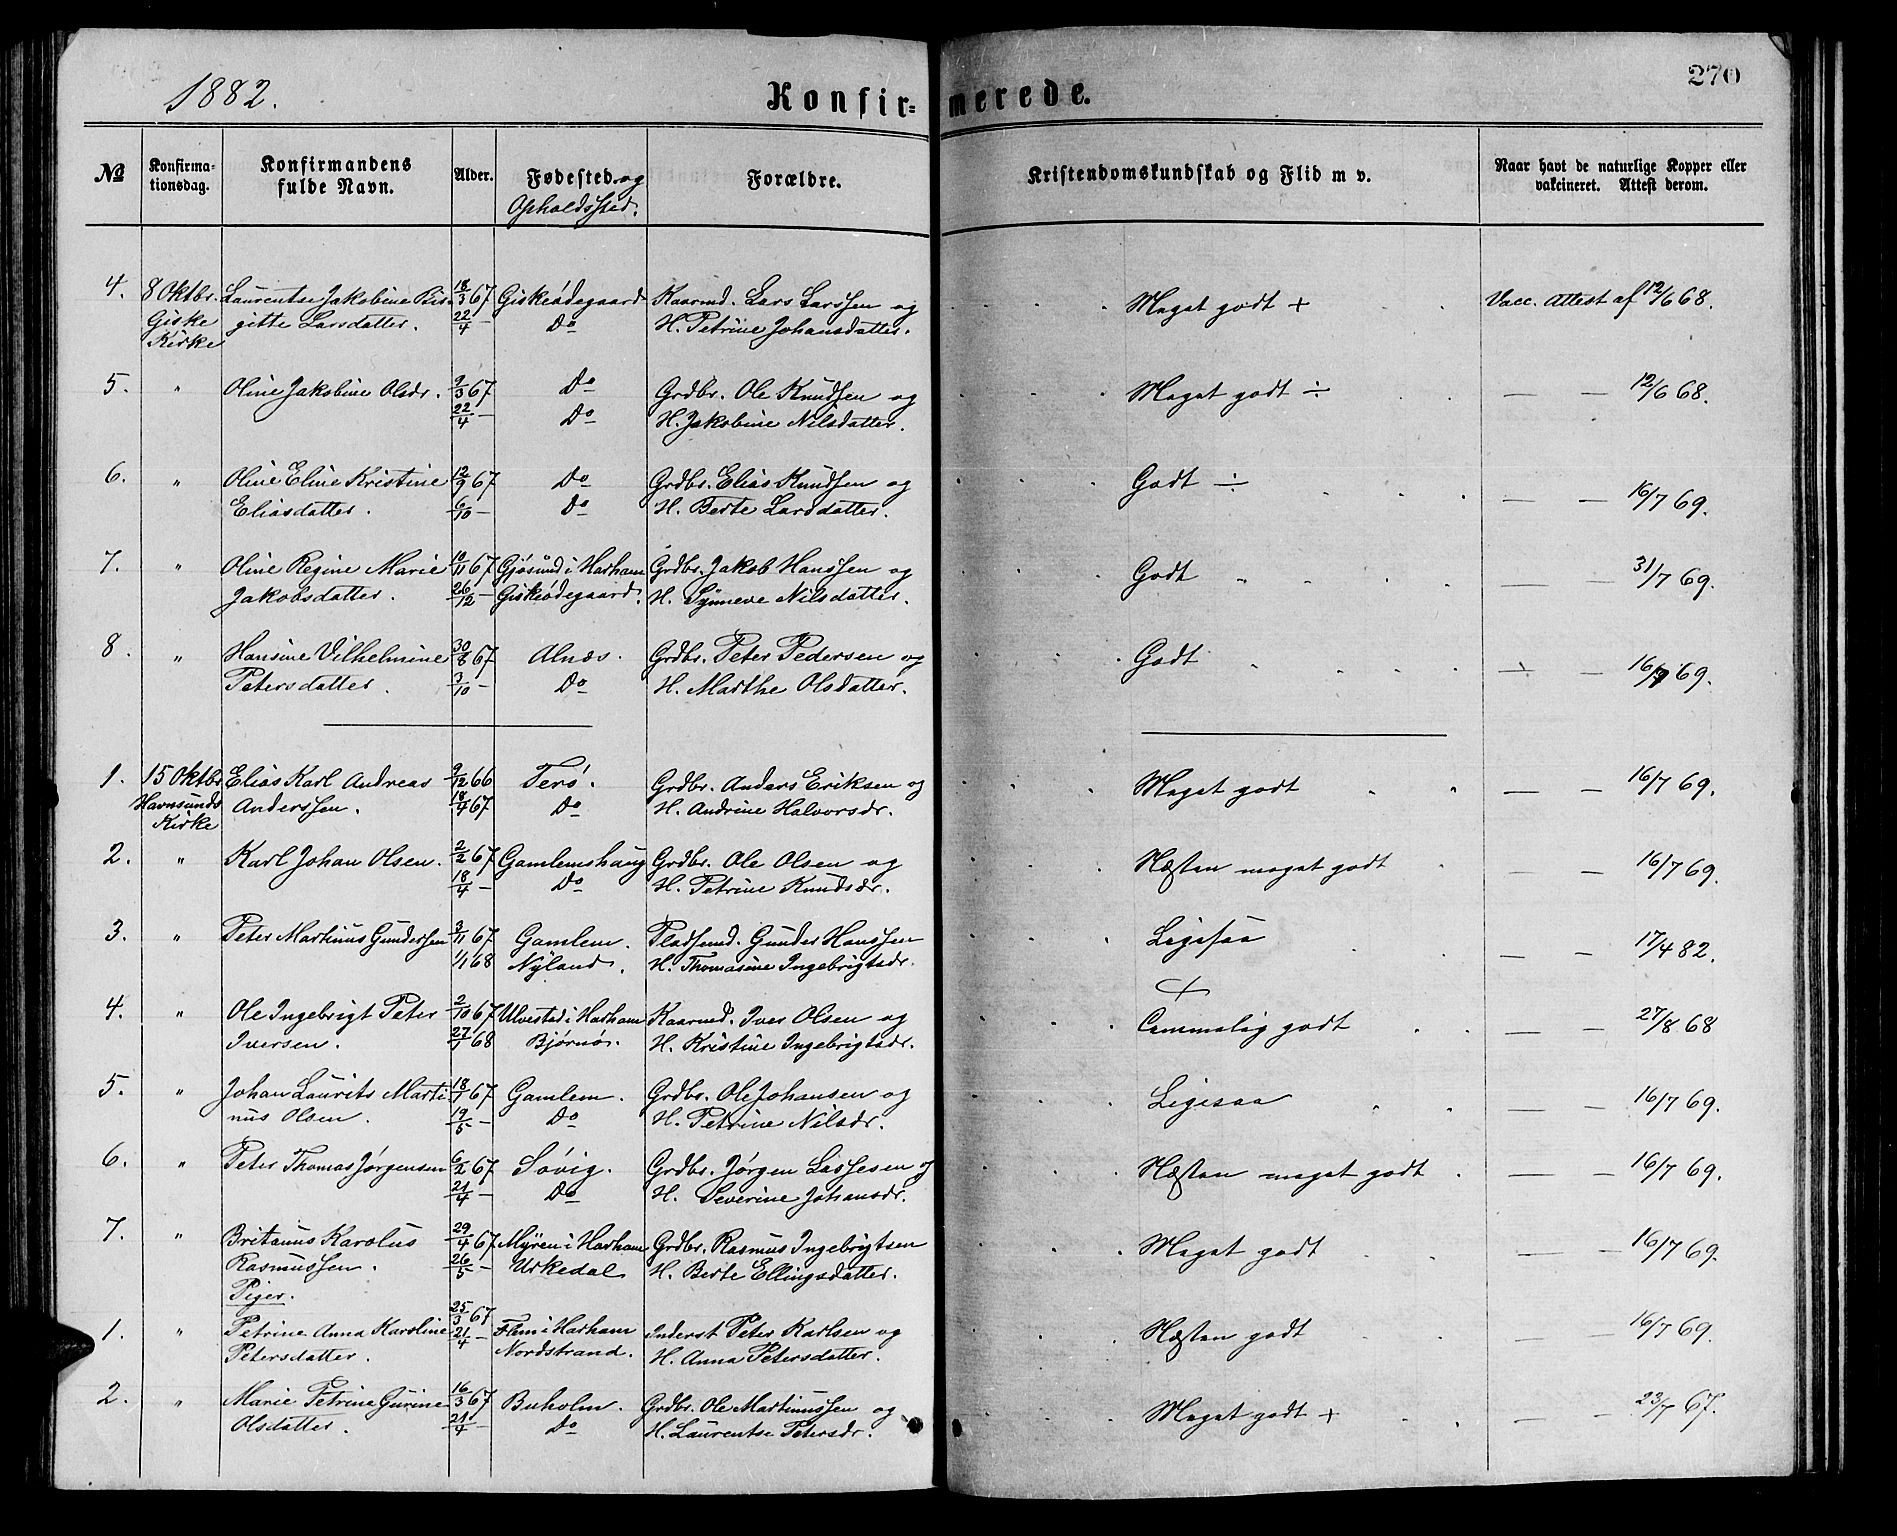 270
1882.
Konfirmerede.
№ Konfirmationsdag. Konfirmandens fulde Navn. Alder. Fødested og Opholdssted. Forældre. Kristendomskundskab og Flid m v. Naar havt de naturlige Kopper eller vakcineret. Attest derom.
4. 8 Oktbr. Laurentse Jakobine Bir- 18/3 67 Giskeødegaard Kaarmd. Lars Larssen og Meget godt + Vacc. Attest af 12/6 68.
Giske gitte Larsdatter. 22/4 — Do H. Petrine Johansdatter.
Kirke
5. " Oline Jakobine Olsdr. 9/3 67 Do Grdbr. Ole Knudsen og Meget godt ÷ — — 12/6 68.
22/4 — Do H. Jakobine Nilsdatter.
6. " Oline Eline Kristine 12/9 67 Do Grdbr. Elias Knudsen og Godt ÷ — — 16/7 69.
Eliasdatter. 6/10 — Do H. Berte Larsdatter.
7. " Oline Regine Marie 10/11 67 Gjøsund i Harham Grdbr. Jakob Hanssen og Godt — — 31/7 69.
Jakobsdatter. 26/12 — Giskeødegaard. H. Synneve Nilsdatter.
8. " Hansine Vilhelmine 30/8 67 Alnæs. Grdbr. Peter Pedersen og Godt — — 16/7 69.
Petersdatter. 3/10 — Do H. Marthe Olsdatter.
1. 15 Oktbr Elias Karl Andreas 9/12 66 Terø. Grdbr. Anders Eriksen og Meget godt — — 16/7 69.
Havnsunds Anderssen. 18/4 67 Do H. Andrine Halvorsdr.
Kirke
2. " Karl Johan Olsen. 2/2 67 Gamlemshaug Grdbr. Ole Olsen og Næsten meget godt — — 16/7 69.
18/4 — Do H. Petrine Knudsdr.
3. " Peter Martinus Gundersen 3/11 67 Gamlem. Pladsmd. Gunder Hanssen Ligesaa — — 17/4 82.
1/1 68 Nyland. H. Thomasine Ingebrigtsdr.
+
4. " Ole Ingebrigt Peter 2/10 67 Ulvestad i Harham Kaarmd. Iver Olsen og Temmelig godt — — 27/8 68
Iversen. 27/1 68 Bjørnø. H. Kristine Ingebrigtsdr.
5. " Johan Laurits Marti- 18/1 67 Gamlem. Grdbr. Ole Johansen og Ligesaa — — 16/7 69.
nus Olsen. 19/5 — Do H. Petrine Nilsdr.
6. " Peter Thomas Jørgensen 6/2 67 Søvig. Grdbr. Jørgen Lassesen og Næsten meget godt — — 16/7 69.
21/4 — Do H. Severine Johansdr.
7. " Britanus Karolus 29/4 67 Myren i Harham Grdbr. Rasmus Ingebrigtsen Meget godt — — 16/7 69.
Rasmussen. 26/5 — Urkedal H. Berte Ellingsdatter.
Piger.
1. " Petrine Anna Karoline 25/3 67 Flem i Harham Inderst Peter Karlsen og Næsten godt — — 16/7 69.
Petersdatter. 21/4 — Nordstrand. H. Anna Petersdatter.
2. " Marie Petrine Gurine 16/3 67 Buholm. Grdbr. Ole Martinussen og Meget godt + — — 23/7 67.
Olsdatter. 21/4 — Do H. Laurentse Petersdr.